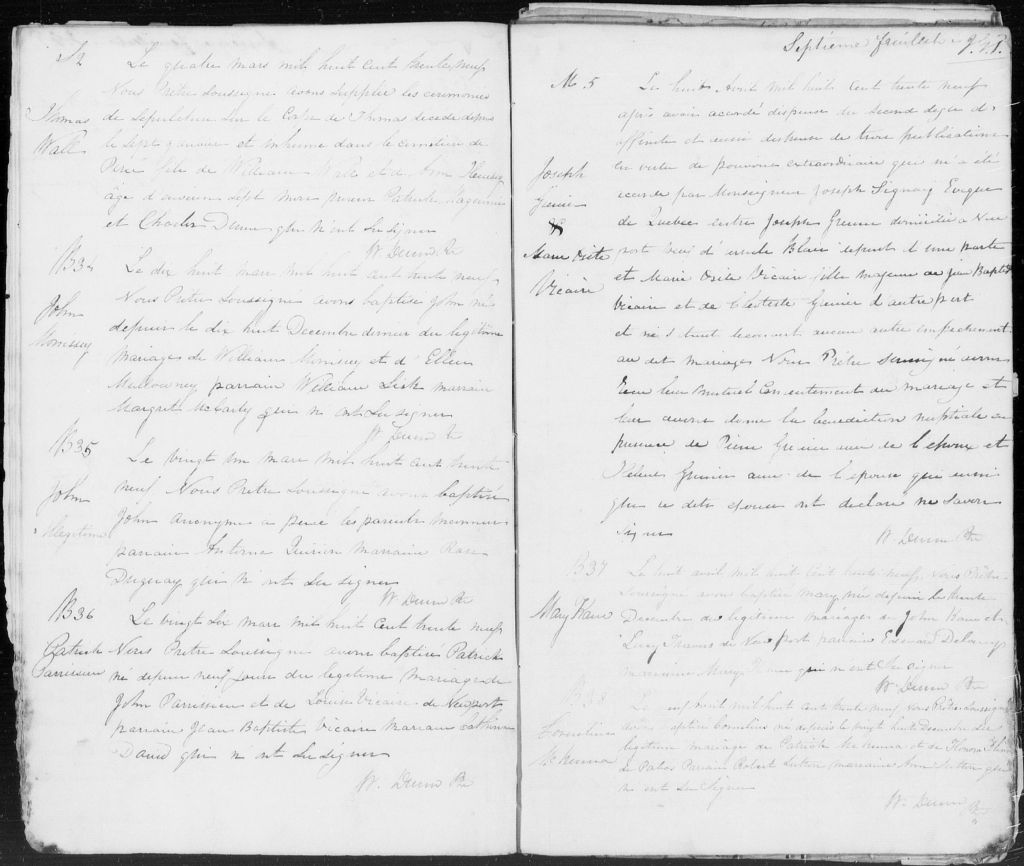 S 2
Thomas
Wall
Le quatre mars mil huit cent trente neuf
Nous Prêtre Soussigné avons supplée les ceremonies
de Sepulture sur le Corps de Thomas decedé depuis
le sept janvier et inhume dans le cimetière de
Percé fils de William Wall et de Ann
âgé d'environ sept mois présens Patrick
et Charles Dunn qui n'ont su signer
W. Dunn Ptre
B34
John
Morrissey
Le dix huit mars mil huit cent trente neuf
Nous Prêtre Soussigné avons baptisé John né
depuis le dix huit Decembre dernier du legitime
mariage de William Morrissey et d'Ellen
Mullowney parrain William Sisk marraine
Margret McCarty qui n'ont su signer
W. Dunn Ptre
B35
John
illegitime
Le vingt un mars mil huit cent trente
neuf Nous Prêtre Soussigné avons baptisé
John Anonyme a percé les parents inconnus
parrain Antoine marraine Rose
Duguay qui n'ont su signer
W. Dunn Ptre
B36
Patrick
Parrissien
Le vingt six mars mil huit cent trente neuf
Nous Prêtre Soussigné avons baptisé Patrick
né depuis neuf jours du legitime mariage de
John Parrissien et de Louise Vicaire de Newport
parrain Jean Baptiste Vicaire marraine Catherine
David qui n'ont su signer
W. Dunn Ptre
Septième feuillet
M 5
Joseph
&
Marie Osite
Vicaire
Le huit Avril mil huit cent trente neuf
après avoir accordé dispense du Second degré d'
affinité et aussi dispense de trois publications
en vertu de pouvoirs extraordinaire qui m'a été
accordé par Monseigneur Joseph Signay Evêque
de Quebec entre Joseph domicilié a New
port Veuf d' Blais d'une parte
et Marie Osite Vicaire fille majeure de Jean Baptiste
Vicaire et de Grenier d'autre part
et ne s'étant trouvé aucun autre empechement
au dit mariage Nous Prêtre soussigné avons
reçu leur mutuel Consentement du mariage et
leur avons donné la benediction nuptiale en
presence de Pierre Grenier ami de l'epoux et
Grenier ami de l'epouse qui aussi
que ce dits epoux ont declaré ne savoir
signer
W. Dunn Ptre
B37
Mary Kane
Le huit avril mil huit cent trente neuf Nous Prêtre
Soussigné avons baptisé Mary née depuis le trente
Decembre du legitime mariage de John Kane et
Lucy de New port parrain Edward Delaney
marraine Mary qui n'ont su signer
W. Dunn Ptre
B38
Cornelius
McKenna
Le neuf avril mil huit cent trente neuf Nous Prêtre Soussigné
avons baptisé Cornelius né depuis le vingt huit Decembre du
legitime mariage de Patrick McKenna et de Honora
de Pabos Parrain Robert Sutton marraine Ann Sutton qui
n'ont su Signer
W. Dunn Ptre